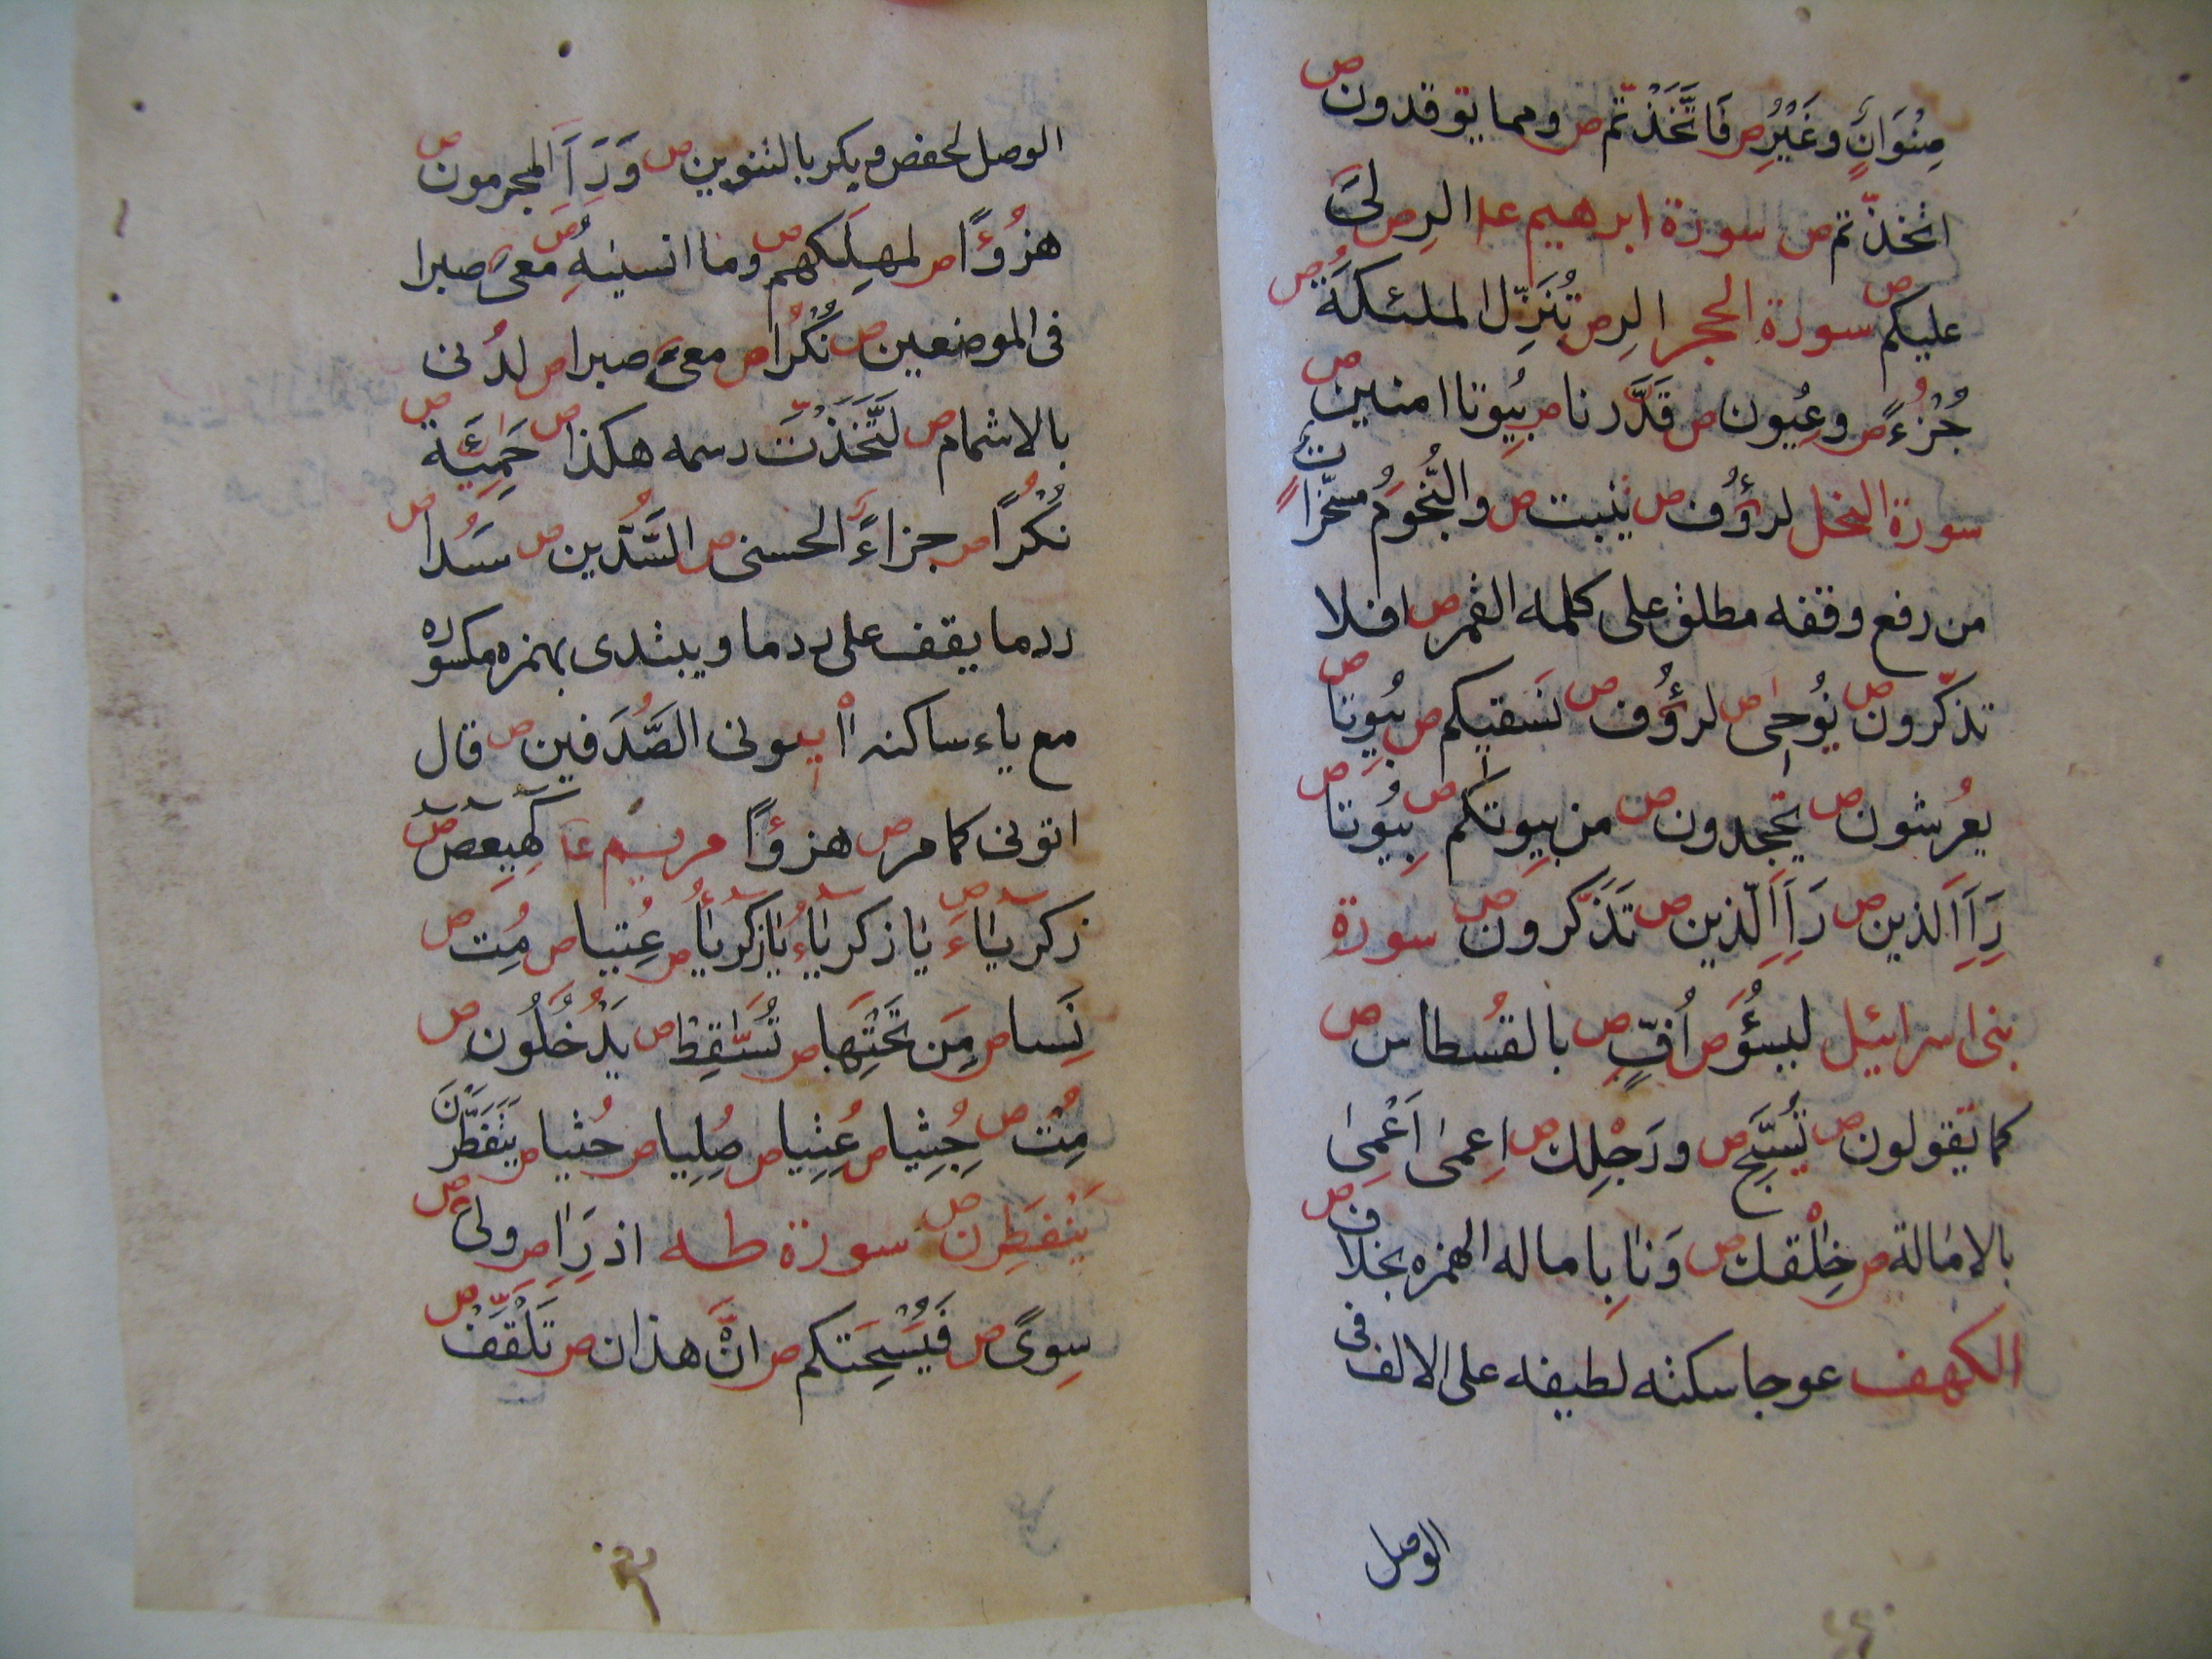 صِنْوَانٍ وغَيْرُ ص فَاتَّخَذْتُم ص ومما يوقدون ص
اتخذتم ص سورة ابرهيم عم الر ص لىَ
عليكم ص سورة الحجر الر ص تُنَزِّل الملئكة ص
جُزْءٌ ص وعِيُون ص قَدَّرنا ص بِيُوتا امنين ص
سورة النحل لرؤُف ص ينبت ص والنُّجُومُ مسخّراتٌ
من رفع وقفه مطلق على كلمه القمر ص افلا
تذكّرون ص يُوحى ص لرؤُف ص نسقيكم ص بيُوتا ص
يعرُشون ص يجحدون ص من بيوتكم ص بيُوتا ص
رَاَ الذين ص رَاَ الّذين ص تَذَكّرون ص سورة
بنى اسرائيل ليسؤَ ص اُفٍّ ص بالقسطاس ص
كما يقولون ص تُسَبِّح ص ورَجْلِك ص اعمىٰ اَعْمِىٰ
بالامالة ص خِلٰفك ص وَنٰاِ باماله الهمزه بخلاف ص
الكهف عوجا سكته لطيفه على الالف فى
الوصل
الوصل لحفص وبكر بالتنوين ص وَرَاَ المجرمون ص
هزُؤًا ص لمهلِكهم ص وما انسٰنيهُ ص معىَ صبرا
فى الموضعين ص نُكْرًا ص معىَ صبرا ص لدُنى
بالاشمام ص لَتَّخَذْتَ رسمه هكذا ص حَمِئَة ص
نُكْرًا ص جزاءً الحسنى ص السَّدّين ص سَدا ص
ردما يقف على ردما ويبتدى بهمزه مكسوره
مع ياء ساكنه اايتونى الصَّدَفين ص قال
اتونى كما مر ص هزؤًا مريم ع كهيعص ص
زكريّاءَ ص يا زكرياءُ يازكريا ص عِتيا ص مُت ص
نَسا ص مِن تَحْتِهَا ص تُسٰقِط ص يَدْخُلُون ص
مِت ص جِثِيا ص عِتِيا ص صُلِيا ص جثيا ص يَتَفَطَّرْنَ
يَنْفَطِرن ص سورة طه اذ رَاٰ ص ولىَ ص
سِوىً ص فَيُسْحِتَكم ص انَّ هذان ص تَلْقَف ص